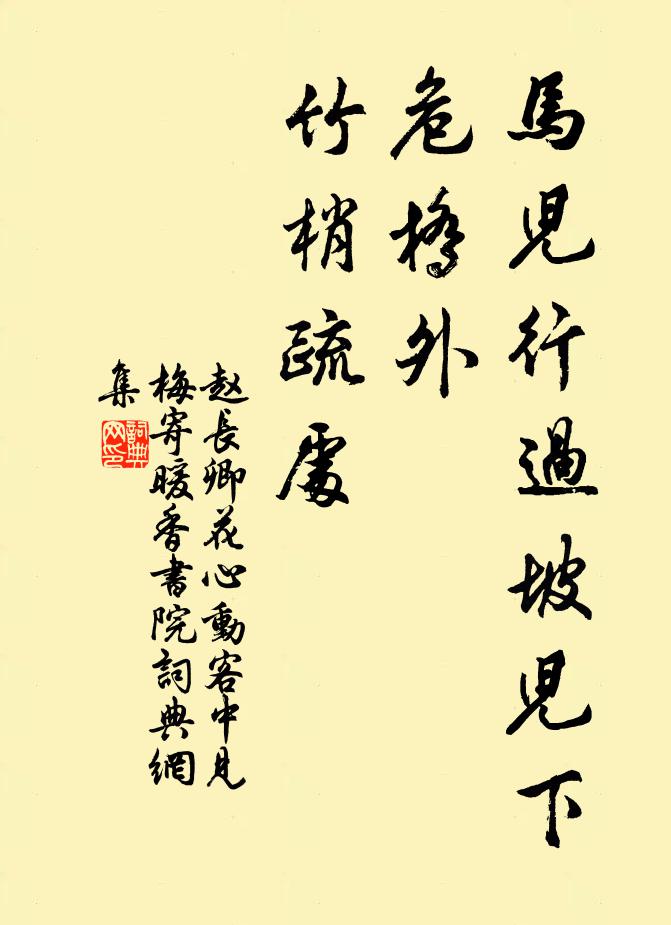 馬兒行過坡兒下
危橋外
竹梢疏處
赵長卿花心動客中見
梅寄暖香書院詞典網
集
詞典
网印